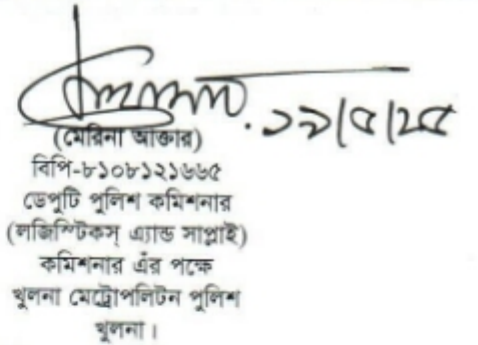 ১৯/৫/২৫
(মেরিনা আক্তার)
বিপি-৮১০৮১২১৬৬৫
ডেপুটি পুলিশ কমিশনার
(লজিস্টিকস্ এ্যান্ড সাপ্লাই)
কমিশনার এঁর পক্ষে
খুলনা মেট্রোপলিটন পুলিশ
খুলনা।